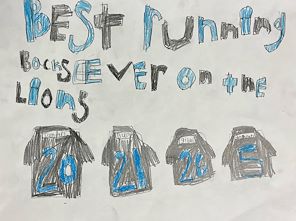 BEST running
BACKS EVER on tHE
Lions
20 21 26 5